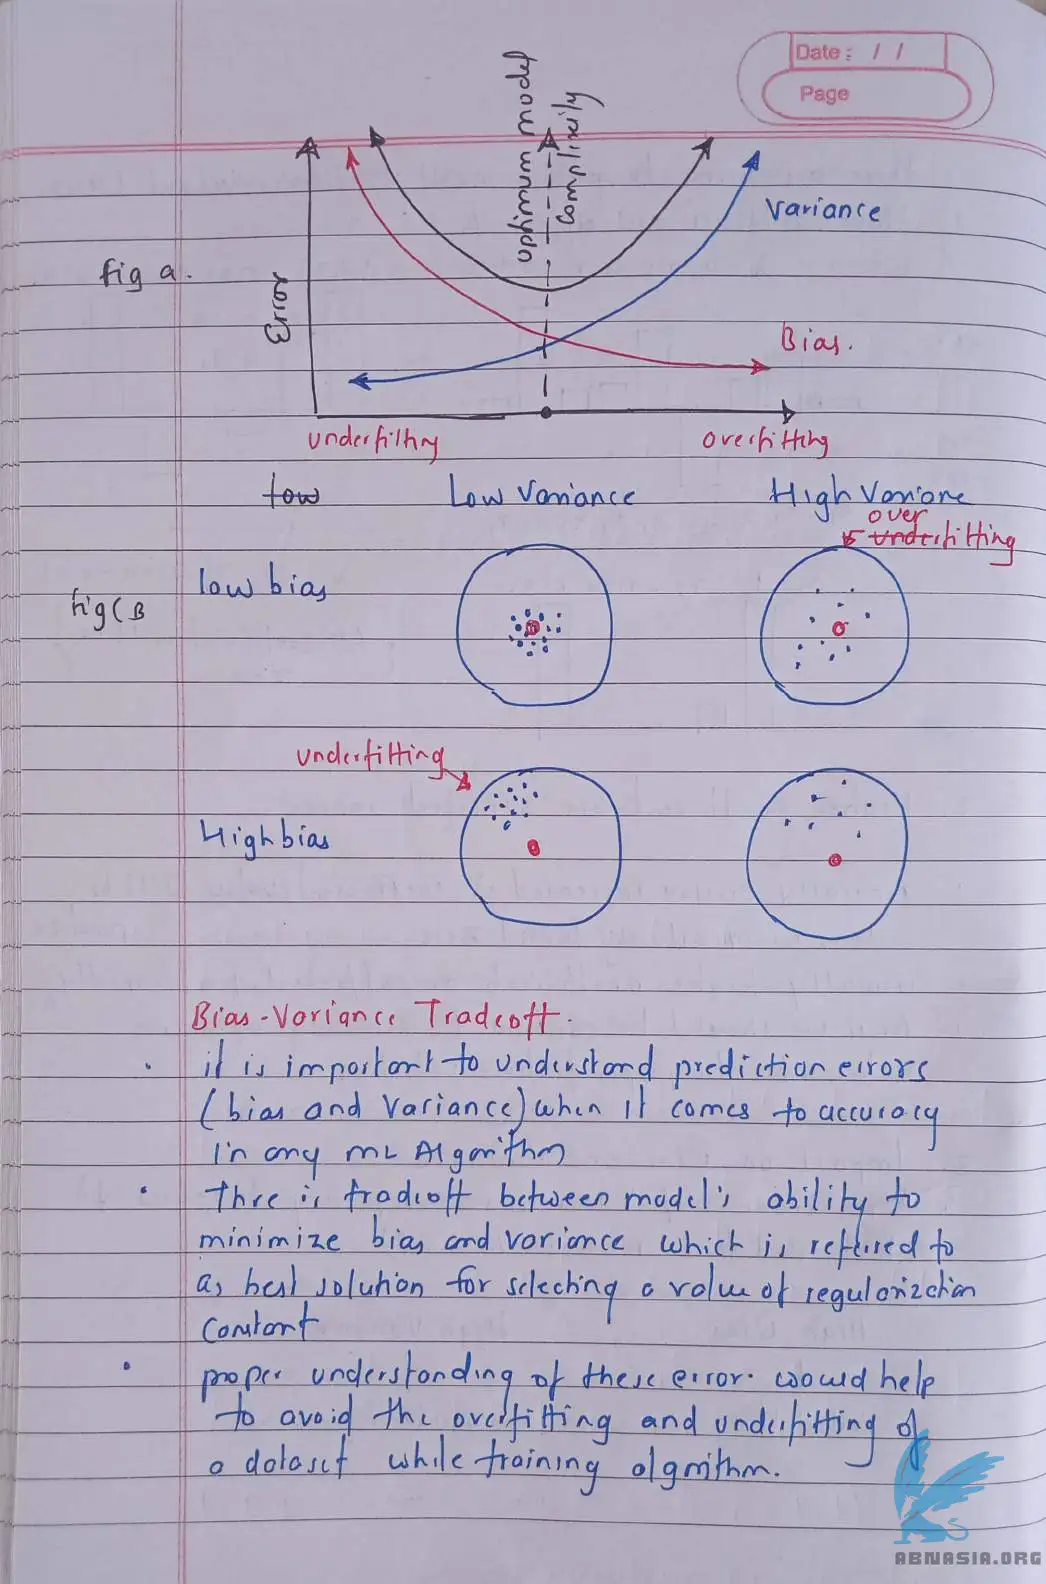 Date : / /
Page
optimum model
Complixcity
Variance
fig a.
Error
Bias.
underfitting
overfitting
low
Low Variance
High Variane
over
underfitting
low bias
fig(B
underfitting
High bias
Bias-Variance Tradeoff.
• it is important to understand prediction errors
(bias and Variance) when it comes to accuracy
in any mL Algorithm
• thre is tradeoff between model's ability to
minimize bias and variance which is refered to
as best solution for selecting a value of regularization
Constant
• proper understanding of these error. would help
to avoid the overfitting and underfitting of
a dataset while training algorithm.
ABNASIA.ORG